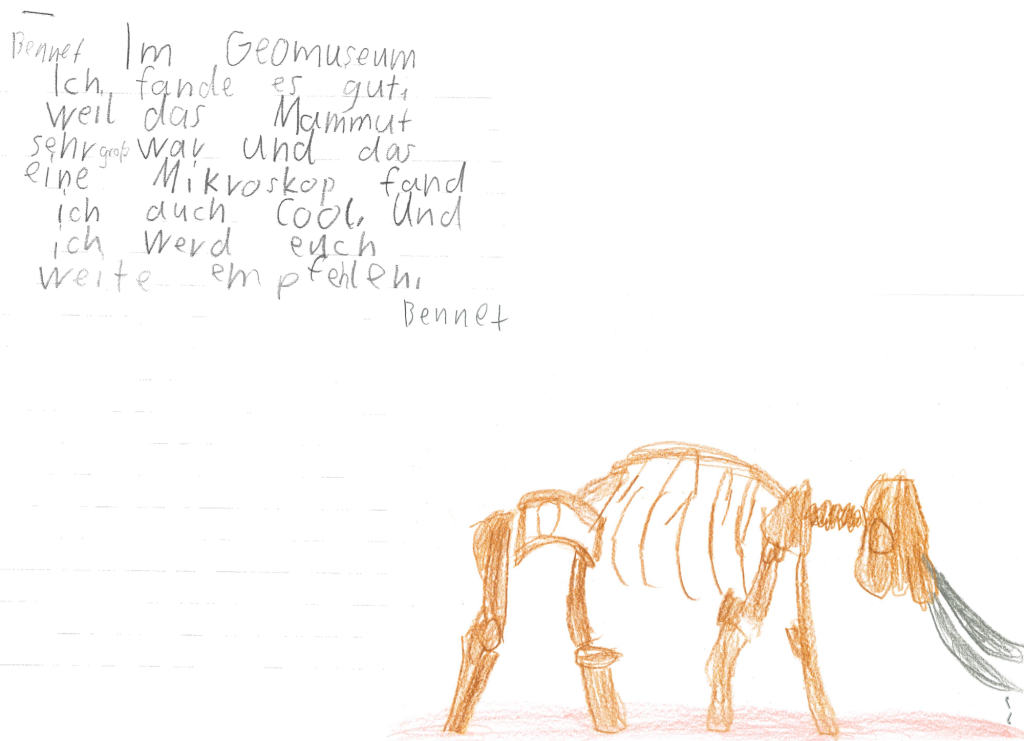 Bennet Im Geomuseum
Ich fande es gut,
weil das Mammut
sehr groß war und das
eine Mikroskop fand
ich auch Cool. Und
ich werd euch
weite empfehlen.
Bennet